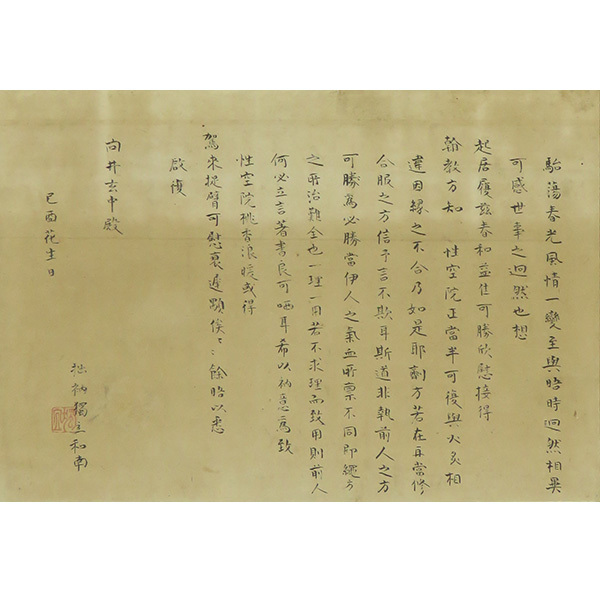 駘蕩春光風情一變至與晤時迥然相異
可感世事之迥然也想
起居履茲春和益佳可勝欣慰接得
翰教方知 性空院正當半可復與火炙相
違因緣之不合乃如是耶劑方若在再當修
合服之方信予言不欺耳斯道非執前人之方
可勝為必勝當伊人之氣血所稟不同即繩方
之所治難全也一理一用若不求理而致用則前人
何必立言著書良可哂耳希以衲意為致
性空院桃杏浪暖或得
駕來捉臂可慰裏遲顒俟々餘晤以悉
啟復
向井玄申殿
己酉花生日
拙衲獨立和南